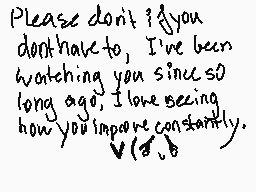 Please don't if you
dont have to, I've been
watching you since so
long ago, I love seeing
how you improve constantly.